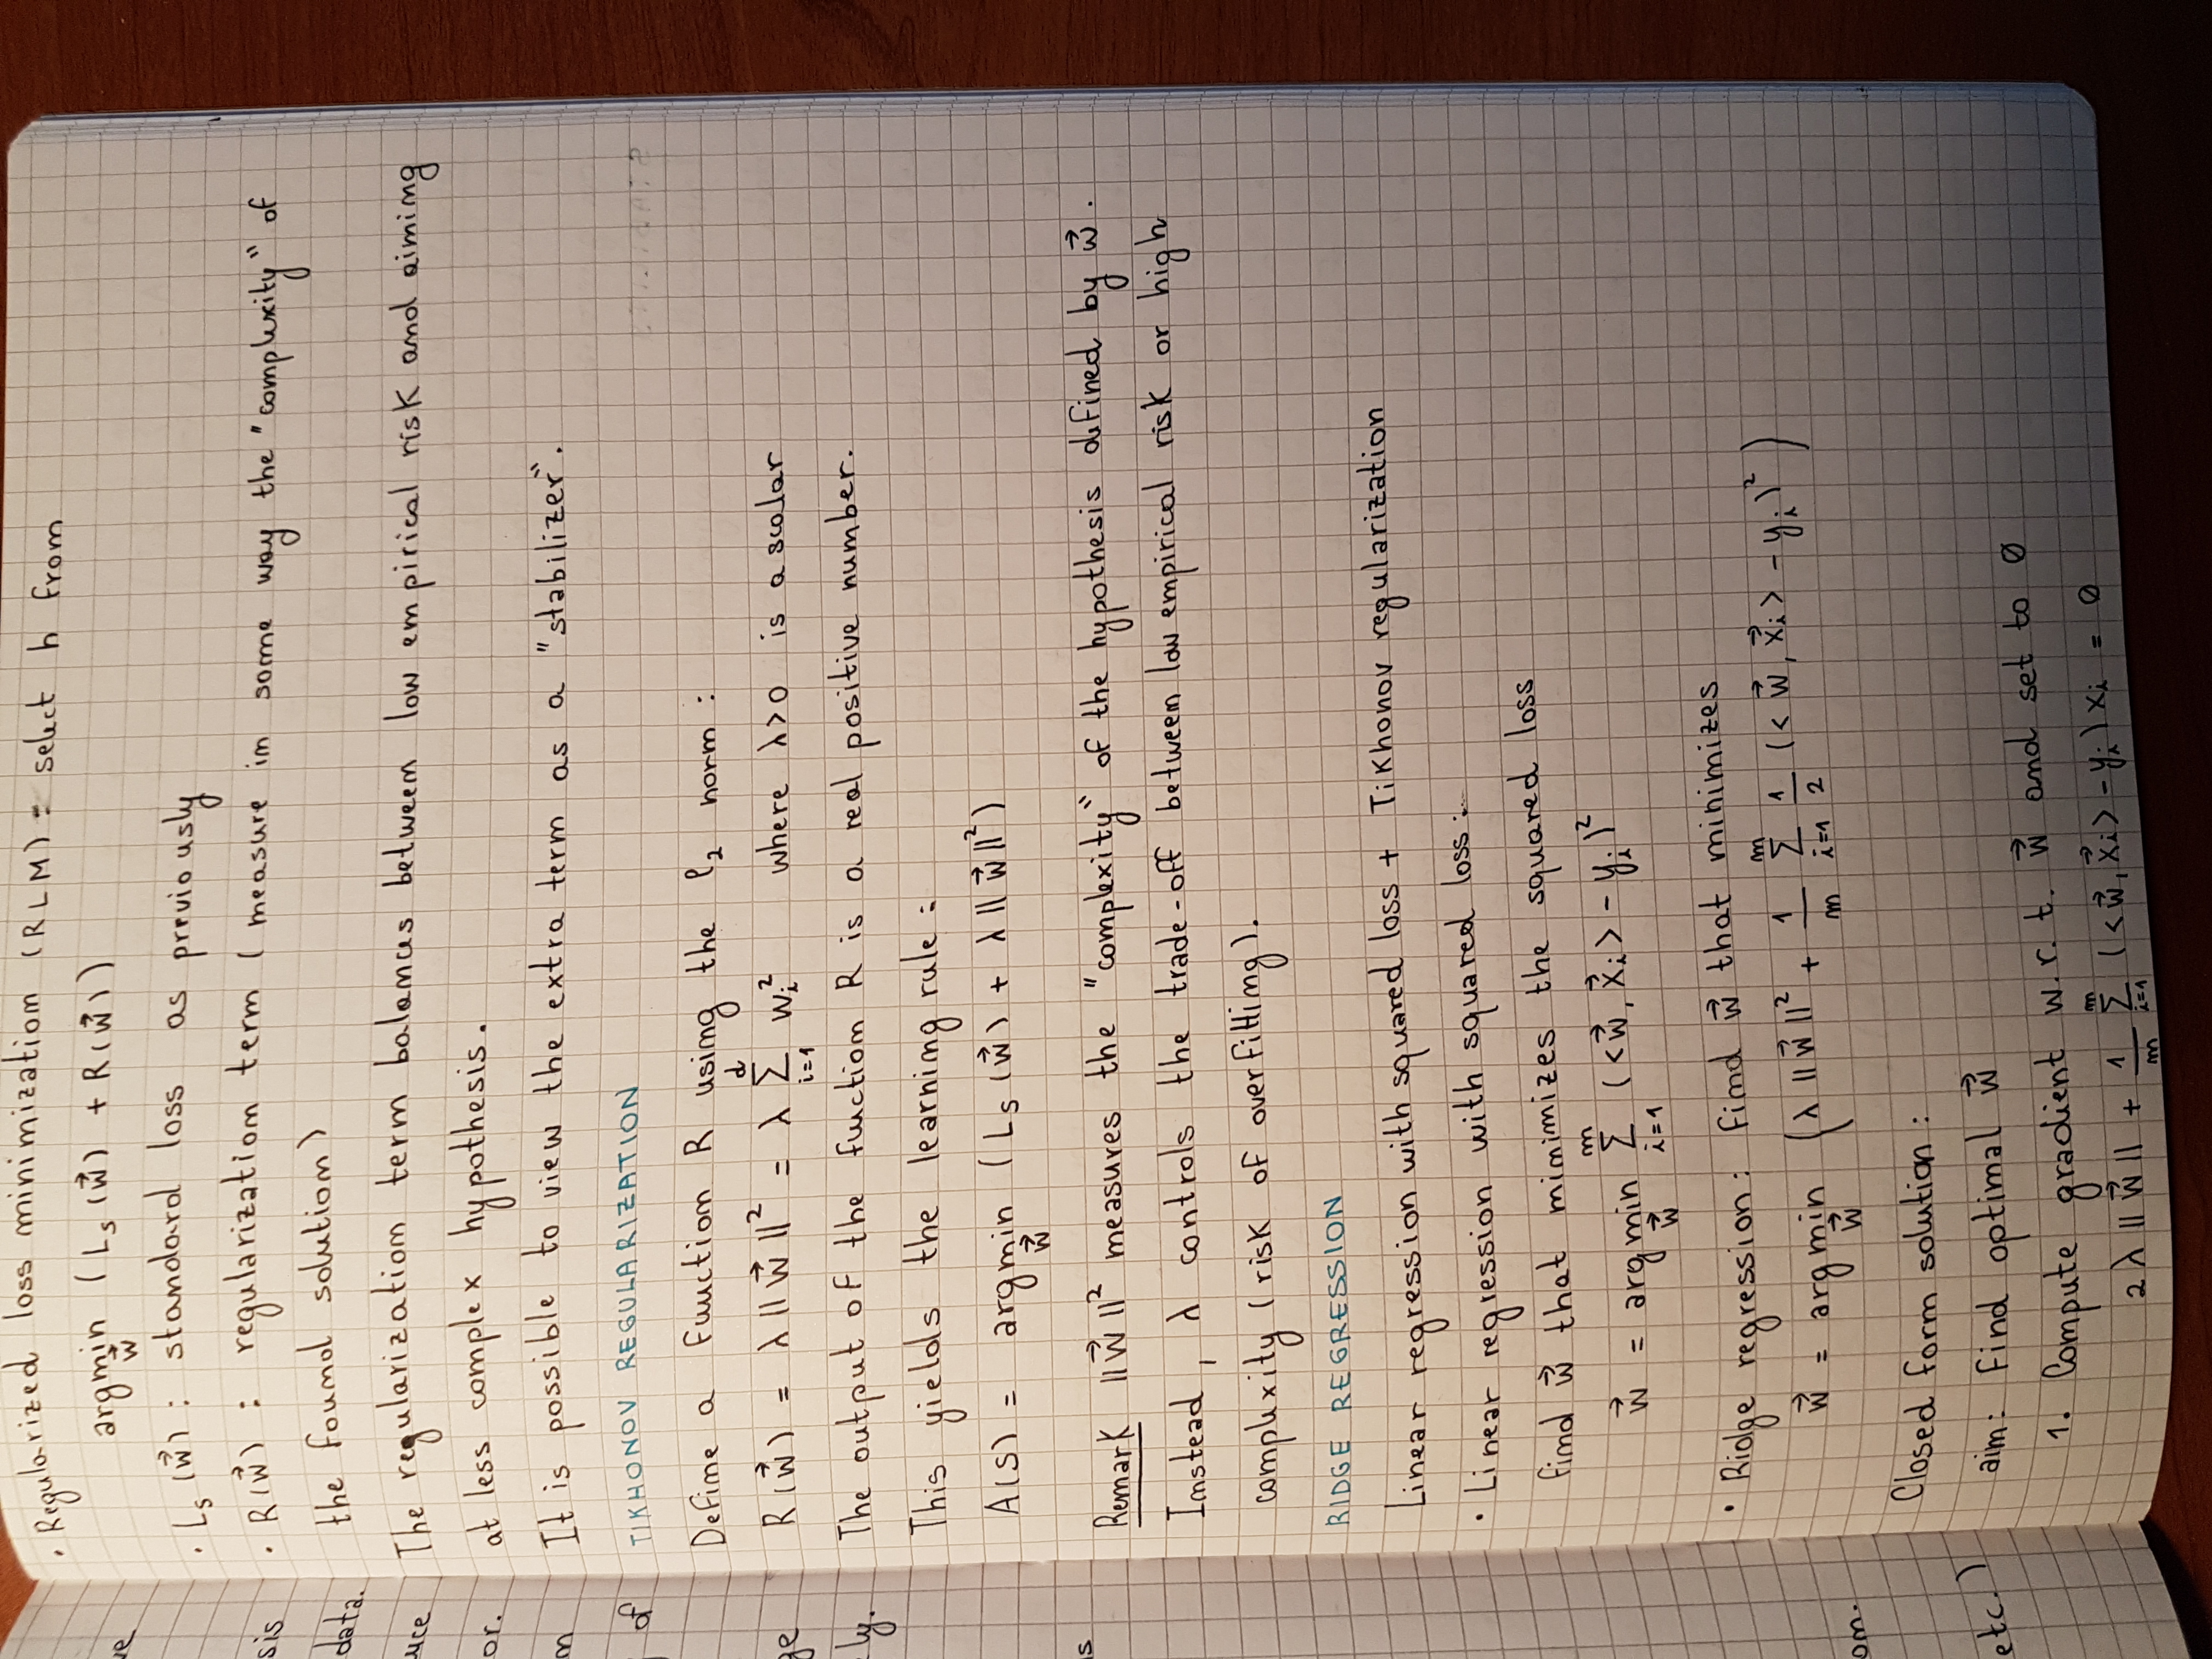 ve
sis
data.
uce
or.
m
of
ge
ly.
s
om.
etc.)
· Regularized loss minimization (RLM) = select h from
argmin_w⃗ (L_s(w⃗) + R(w⃗))
· L_s(w⃗) : standard loss as previously
· R(w⃗) : regularization term (measure in some way the "complexity" of
the found solution)
The regularization term balances between low empirical risk and aiming
at less complex hypothesis.
It is possible to view the extra term as a "stabilizer".
TIKHONOV REGULARIZATION
Define a function R using the ℓ₂ norm :
R(w⃗) = λ||w⃗||² = λ Σ_{i=1}^{d} w_i² where λ>0 is a scalar
The output of the function R is a real positive number.
This yields the learning rule :
A(S) = argmin_w⃗ (L_s(w⃗) + λ||w⃗||²)
Remark ||w⃗||² measures the "complexity" of the hypothesis defined by w⃗.
Instead, λ controls the trade-off between low empirical risk or high
complexity (risk of overfitting).
RIDGE REGRESSION
Linear regression with squared loss + Tikhonov regularization
· Linear regression with squared loss :
find w⃗ that minimizes the squared loss
w⃗ = argmin_w⃗ Σ_{i=1}^{m} (<w⃗, x⃗_i> - y_i)²
· Ridge regression: find w⃗ that minimizes
w⃗ = argmin_w⃗ (λ||w⃗||² + 1/m Σ_{i=1}^{m} 1/2 (<w⃗, x⃗_i> - y_i)²)
Closed form solution :
aim: Find optimal w⃗
1. Compute gradient w.r.t. w⃗ and set to 0
2λ||w⃗|| + 1/m Σ_{i=1}^{m} (<w⃗, x⃗_i> - y_i) x_i = 0